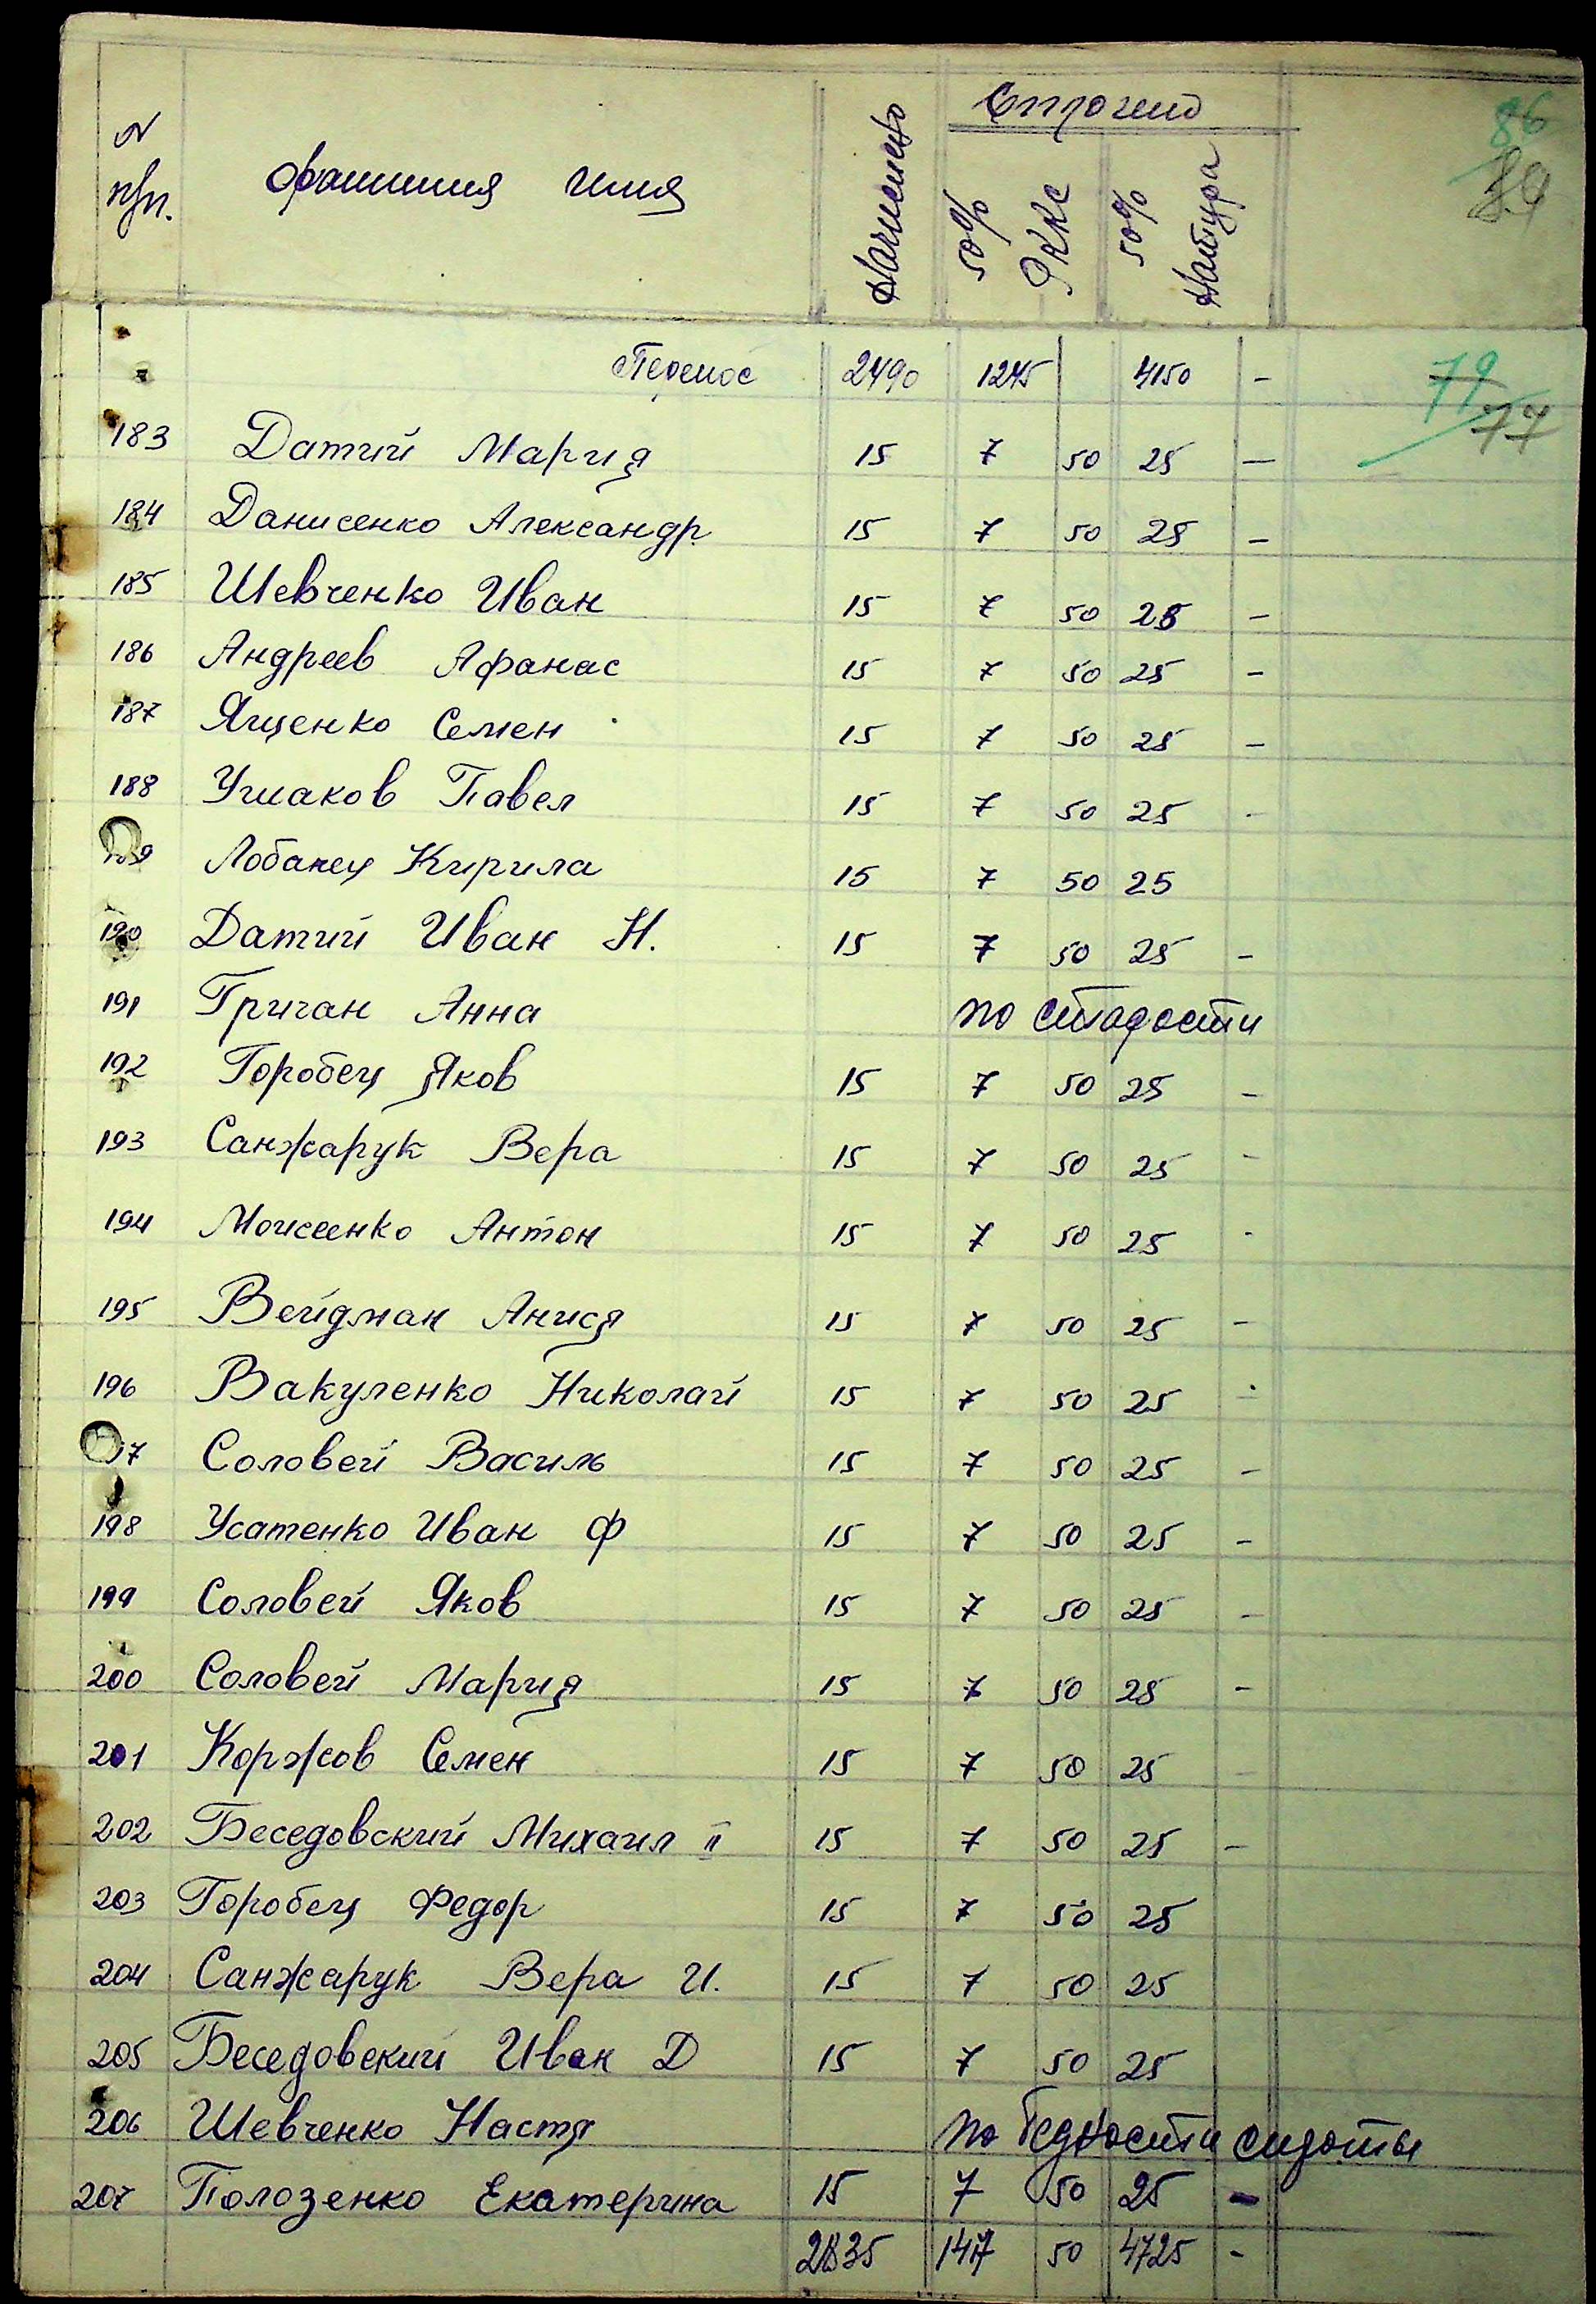 Уплочено
86
84
N п/п. Фамилия Имя Начислено 50% РККС 50% Натура
Перенос 2490 1245 4150 -
79
77
183 Датий Мария 15 7 50 25 -
184 Данисенко Александр 15 7 50 25 -
185 Шевченко Иван 15 7 50 25 -
186 Андреев Афанас 15 7 50 25 -
187 Ященко Семен 15 7 50 25 -
188 Ушаков Павел 15 7 50 25 -
189 Лобанец Кирила 15 7 50 25
190 Датий Иван Н. 15 7 50 25 -
191 Гричан Анна по старости
192 Горобец Яков 15 7 50 25 -
193 Санжарук Вера 15 7 50 25 -
194 Моисеенко Антон 15 7 50 25 -
195 Вейдман Анися 15 7 50 25 -
196 Вакуленко Николай 15 7 50 25 -
197 Соловей Василь 15 7 50 25 -
198 Усатенко Иван Ф 15 7 50 25 -
199 Соловей Яков 15 7 50 25 -
200 Соловей Мария 15 7 50 25 -
201 Коржов Семен 15 7 50 25 -
202 Беседовский Михаил II 15 7 50 25 -
203 Горобец Федор 15 7 50 25
204 Санжарук Вера И. 15 7 50 25
205 Беседовский Иван Д 15 7 50 25
206 Шевченко Настя по бедности сироты
207 Полозенко Екатерина 15 7 50 25 -
2835 1417 50 4725 -